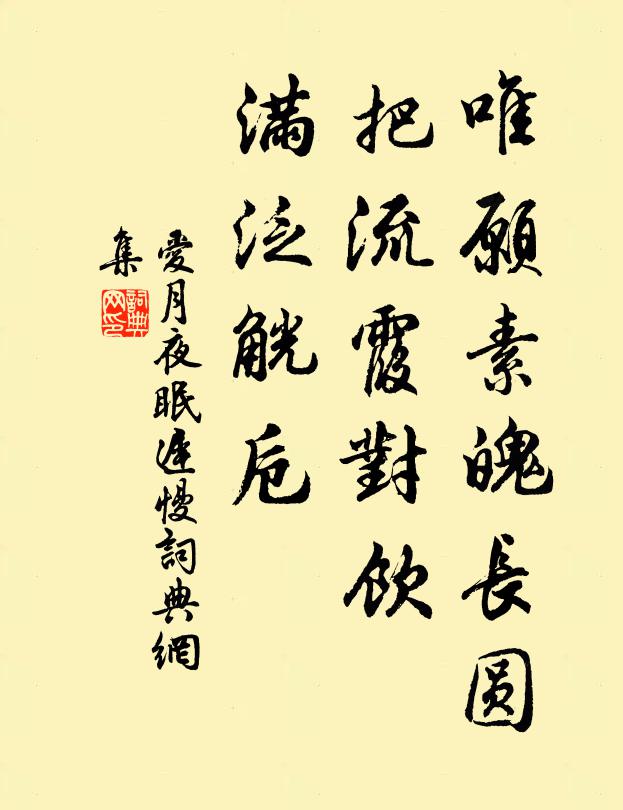 唯願素魄長圓
把流霞對飲
滿泛觥卮
愛月夜眠遲慢詞典網
集
詞典
网印